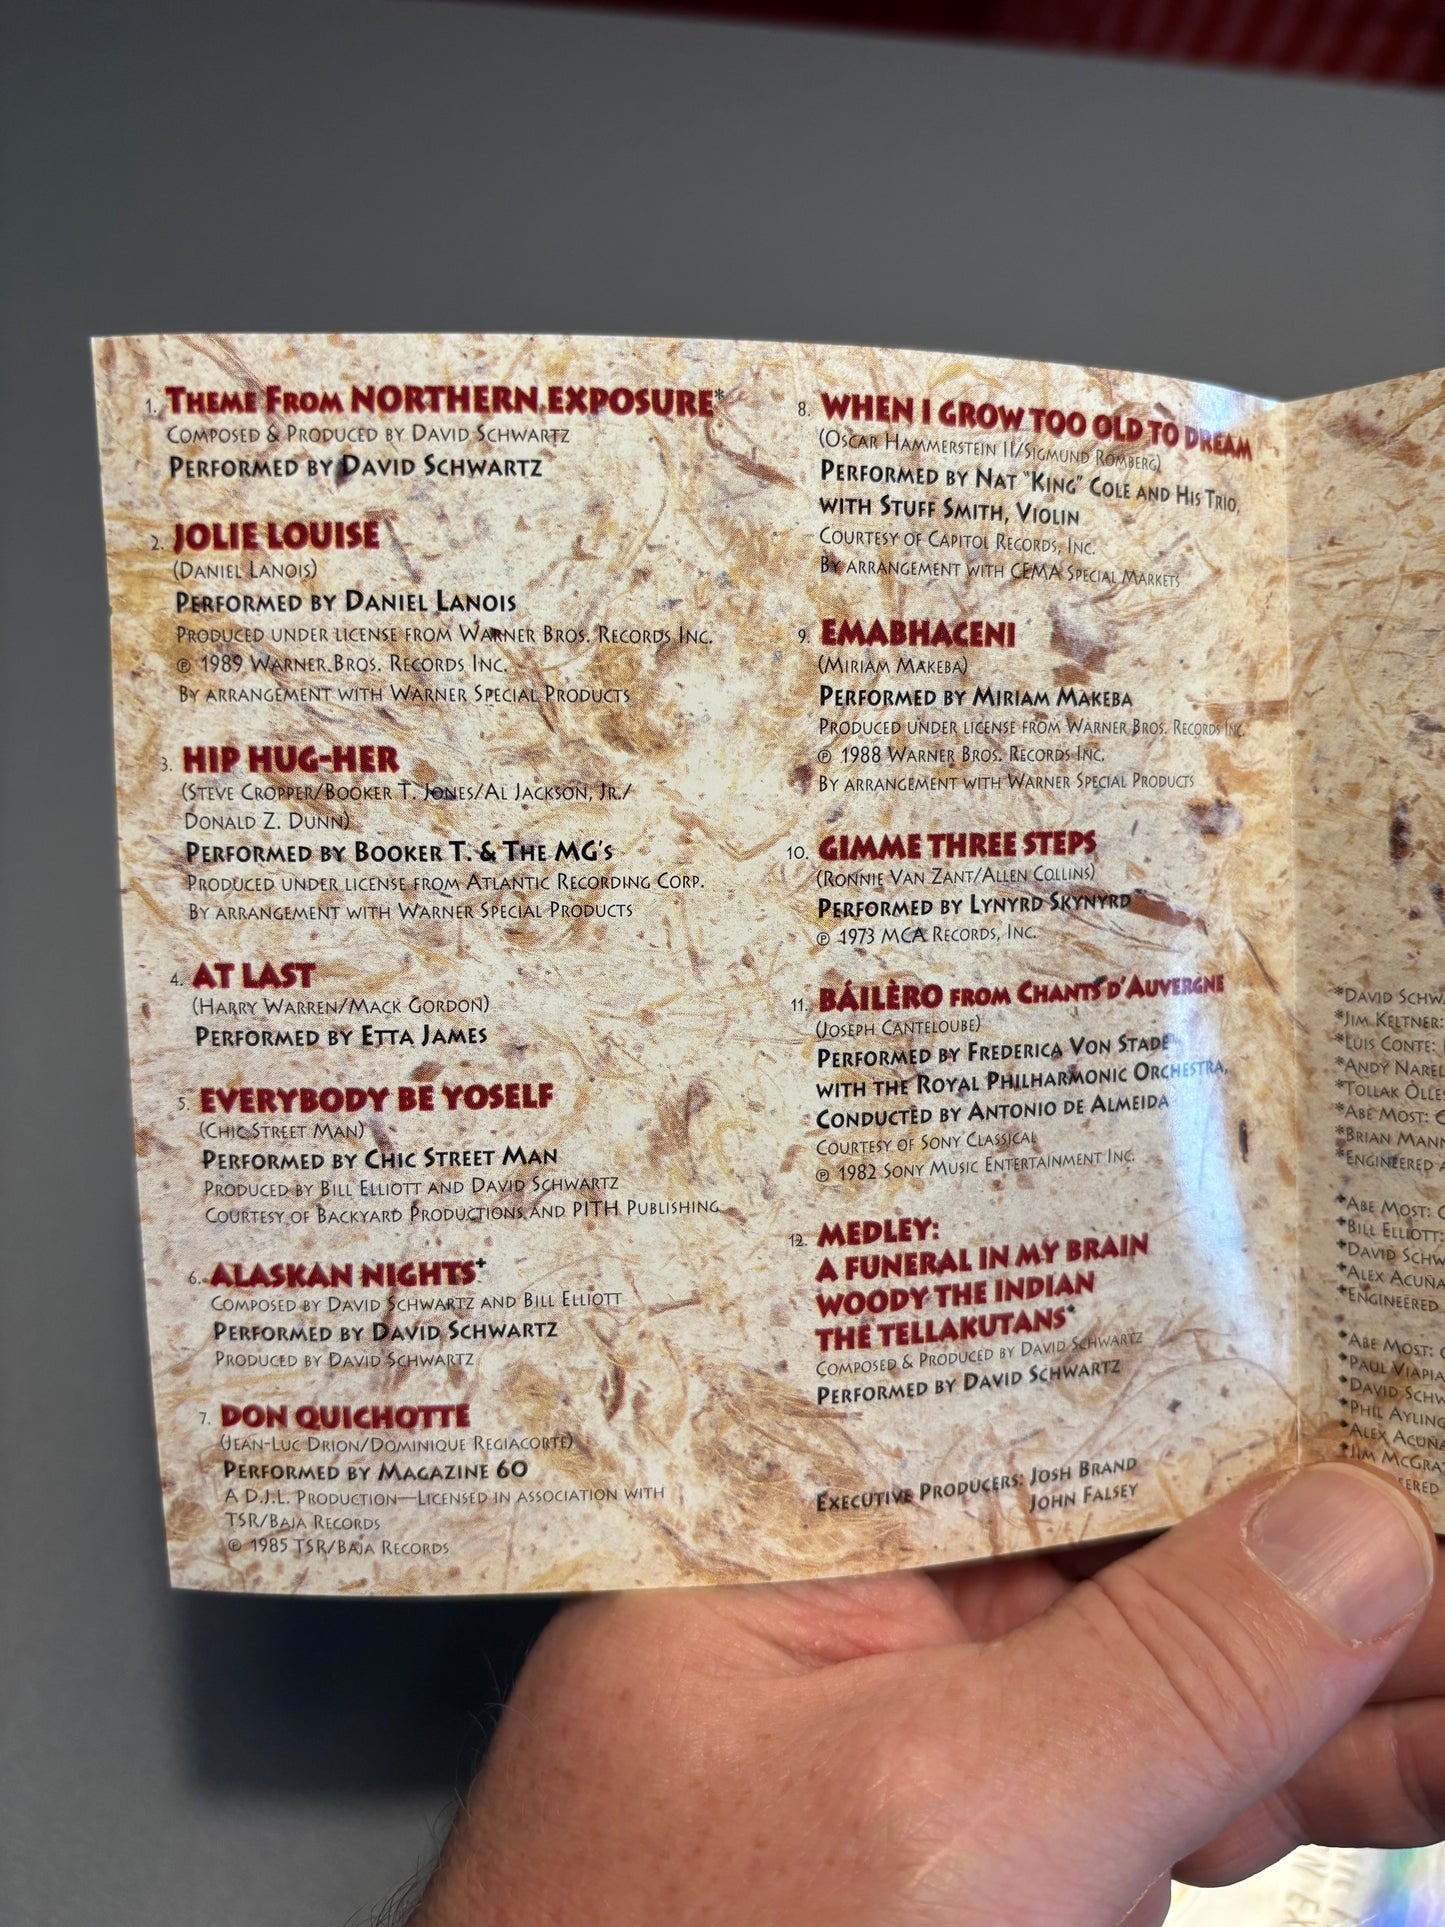 1. THEME FROM NORTHERN EXPOSURE*
COMPOSED & PRODUCED BY DAVID SCHWARTZ
PERFORMED BY DAVID SCHWARTZ
2. JOLIE LOUISE
(DANIEL LANOIS)
PERFORMED BY DANIEL LANOIS
PRODUCED UNDER LICENSE FROM WARNER BROS. RECORDS INC.
℗ 1989 WARNER BROS. RECORDS INC.
BY ARRANGEMENT WITH WARNER SPECIAL PRODUCTS
3. HIP HUG-HER
(STEVE CROPPER/BOOKER T. JONES/AL JACKSON, JR./
DONALD Z. DUNN)
PERFORMED BY BOOKER T. & THE MG'S
PRODUCED UNDER LICENSE FROM ATLANTIC RECORDING CORP.
BY ARRANGEMENT WITH WARNER SPECIAL PRODUCTS
4. AT LAST
(HARRY WARREN/MACK GORDON)
PERFORMED BY ETTA JAMES
5. EVERYBODY BE YOSELF
(CHIC STREET MAN)
PERFORMED BY CHIC STREET MAN
PRODUCED BY BILL ELLIOTT AND DAVID SCHWARTZ
COURTESY OF BACKYARD PRODUCTIONS AND PITH PUBLISHING
6. ALASKAN NIGHTS+
COMPOSED BY DAVID SCHWARTZ AND BILL ELLIOTT
PERFORMED BY DAVID SCHWARTZ
PRODUCED BY DAVID SCHWARTZ
7. DON QUICHOTTE
(JEAN-LUC DRION/DOMINIQUE REGIACORTE)
PERFORMED BY MAGAZINE 60
A D.J.L. PRODUCTION—LICENSED IN ASSOCIATION WITH
TSR/BAJA RECORDS
℗ 1985 TSR/BAJA RECORDS
8. WHEN I GROW TOO OLD TO DREAM
(OSCAR HAMMERSTEIN II/SIGMUND ROMBERG)
PERFORMED BY NAT "KING" COLE AND HIS TRIO,
WITH STUFF SMITH, VIOLIN
COURTESY OF CAPITOL RECORDS, INC.
BY ARRANGEMENT WITH CEMA SPECIAL MARKETS
9. EMABHACENI
(MIRIAM MAKEBA)
PERFORMED BY MIRIAM MAKEBA
PRODUCED UNDER LICENSE FROM WARNER BROS. RECORDS INC.
℗ 1988 WARNER BROS. RECORDS INC.
BY ARRANGEMENT WITH WARNER SPECIAL PRODUCTS
10. GIMME THREE STEPS
(RONNIE VAN ZANT/ALLEN COLLINS)
PERFORMED BY LYNYRD SKYNYRD
℗ 1973 MCA RECORDS, INC.
11. BÁILÈRO FROM CHANTS D'AUVERGNE
(JOSEPH CANTELOUBE)
PERFORMED BY FREDERICA VON STADE
WITH THE ROYAL PHILHARMONIC ORCHESTRA,
CONDUCTED BY ANTONIO DE ALMEIDA
COURTESY OF SONY CLASSICAL
℗ 1982 SONY MUSIC ENTERTAINMENT INC.
12. MEDLEY:
A FUNERAL IN MY BRAIN
WOODY THE INDIAN
THE TELLAKUTANS*
COMPOSED & PRODUCED BY DAVID SCHWARTZ
PERFORMED BY DAVID SCHWARTZ
EXECUTIVE PRODUCERS: JOSH BRAND
JOHN FALSEY
*DAVID SCHW
*JIM KELTNER:
*LUIS CONTE:
*ANDY NAREL
*TOLLAK ÔLLES
*ABE MOST:
*BRIAN MANN
*ENGINEERED
*ABE MOST:
*BILL ELLIOTT:
*DAVID SCHW
*ALEX ACUÑA
*ENGINEERED
*ABE MOST:
*PAUL VIAPIA
*DAVID SCHW
*PHIL AYLING
*ALEX ACUÑA
*JIM MCGRA